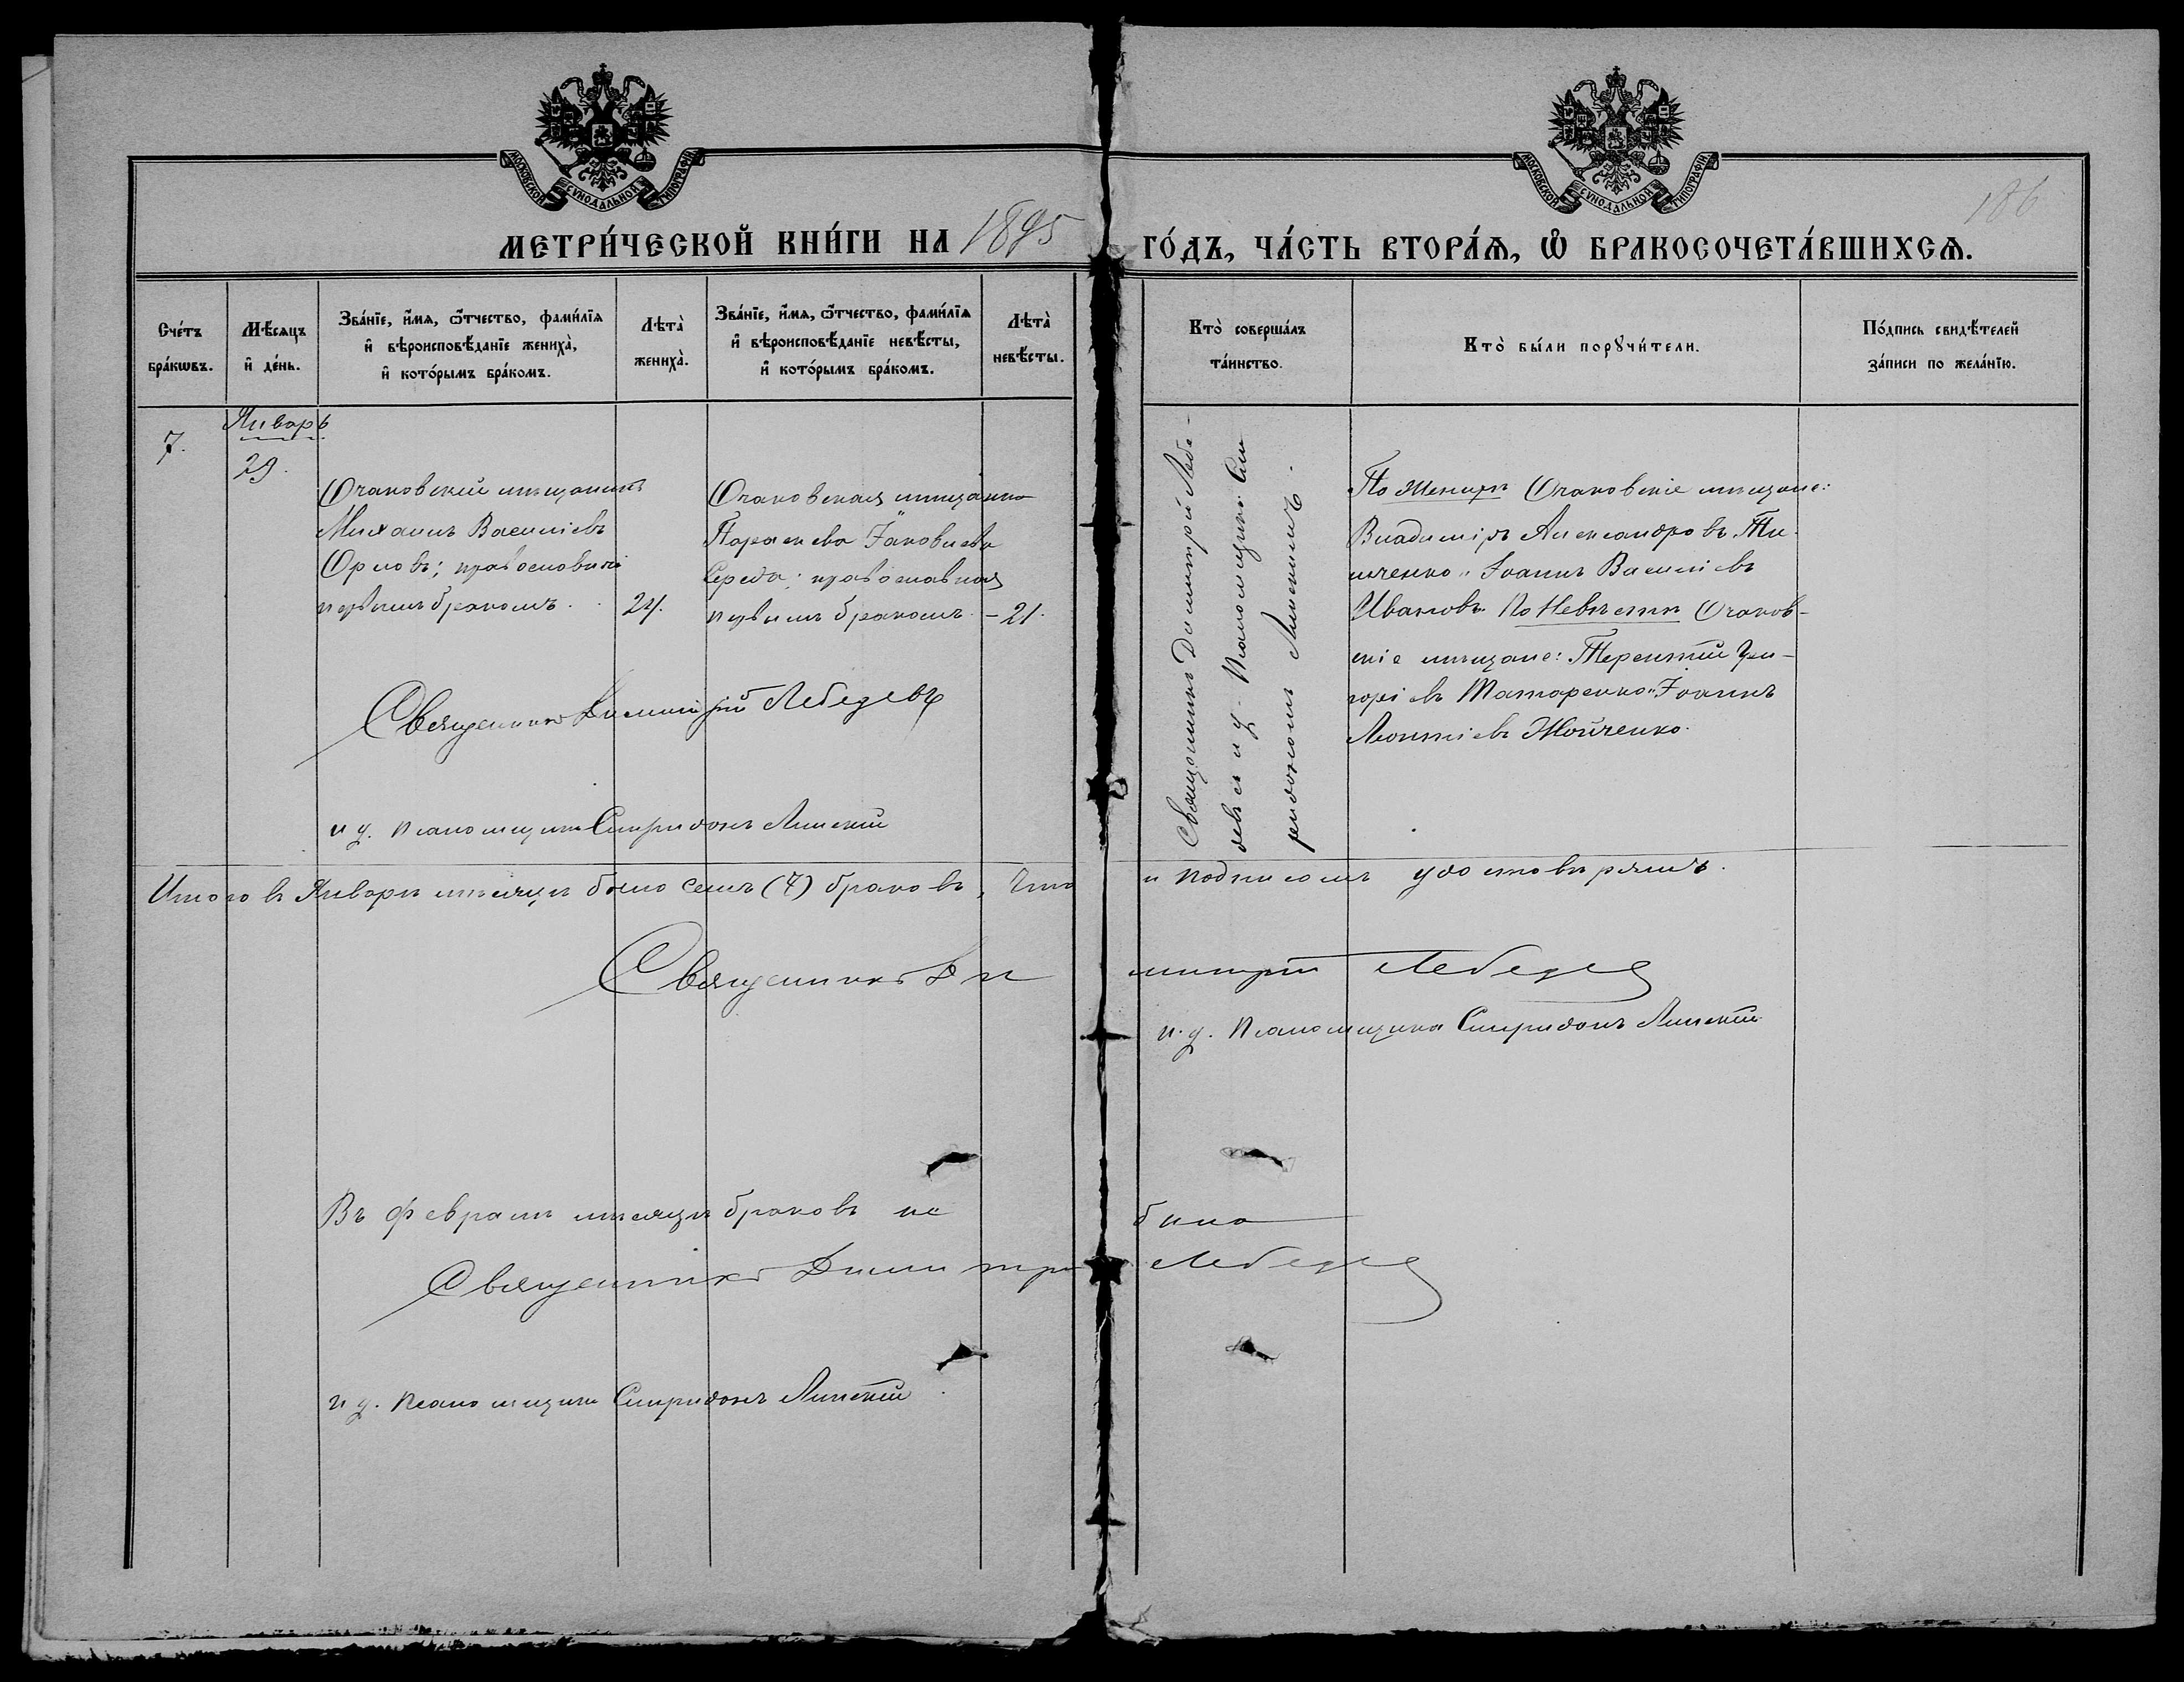 МОСКОВСКОЙ СУНОДАЛЬНОЙ ТИПОГРАФІИ
МОСКОВСКОЙ СУНОДАЛЬНОЙ ТИПОГРАФІИ
186
МЕТРИ́ЧЕСКОЙ КНИ́ГИ НА 1895 ГО́ДЪ, ЧА́СТЬ ВТОРА́Ѧ, Ѡ҆ БРАКОСОЧЕТА́ВШИХСѦ.
Сче́тъ
бра́кѡвъ.
Мѣ́сѧцъ
и҆ де́нь.
Зва́нїе, и҆́мѧ, ѻ҆́тчество, фами́лїѧ
и҆ вѣроисповѣ́данїе жениха̀,
и҆ кото́рымъ бра́комъ.
Лѣта̀
жениха̀.
Зва́нїе, и҆́мѧ, ѻ҆́тчество, фами́лїѧ
и҆ вѣроисповѣ́данїе невѣ́сты,
и҆ кото́рымъ бра́комъ.
Лѣта̀
невѣ́сты.
Кто̀ соверша́лъ
та́инство.
Кто̀ бы́ли порꙋчи́тели.
По́дпись свидѣ́телей
за́писи по жела́нїю.
7.
Январь
29.
Очаковскій мѣщанинъ
Михаилъ Василіевъ
Орловъ; православный
первымъ бракомъ.
24.
Очаковская мѣщанка
Параскева Іаковлева
Середа; православная
первымъ бракомъ.
- 21.
Священникъ Димитрій Лебе-
девъ съ и. д. псаломщика Спи
ридономъ Липскимъ.
По женихѣ Очаковскіе мѣщане:
Владиміръ Александровъ
Іоаннъ Василіевъ
Ивановъ. По невѣстѣ Очаков-
скіе мѣщане: Терентій Гри-
горіевъ Татаренко и Іоаннъ
Леонтіевъ Жойченко.
Священникъ Димитрій Лебедевъ
и д. псаломщика Спиридонъ Липскій
Итого въ Январѣ мѣсяцѣ было семь (7) браковъ, что и подписомъ удостовѣряемъ.
Священникъ Димитрій Лебедев
и. д. Псаломщика Спиридонъ Липскій
Въ февралѣ мѣсяцѣ браковъ не было
Священникъ Димитрій Лебедев
и д. псаломщика Спиридонъ Липскій